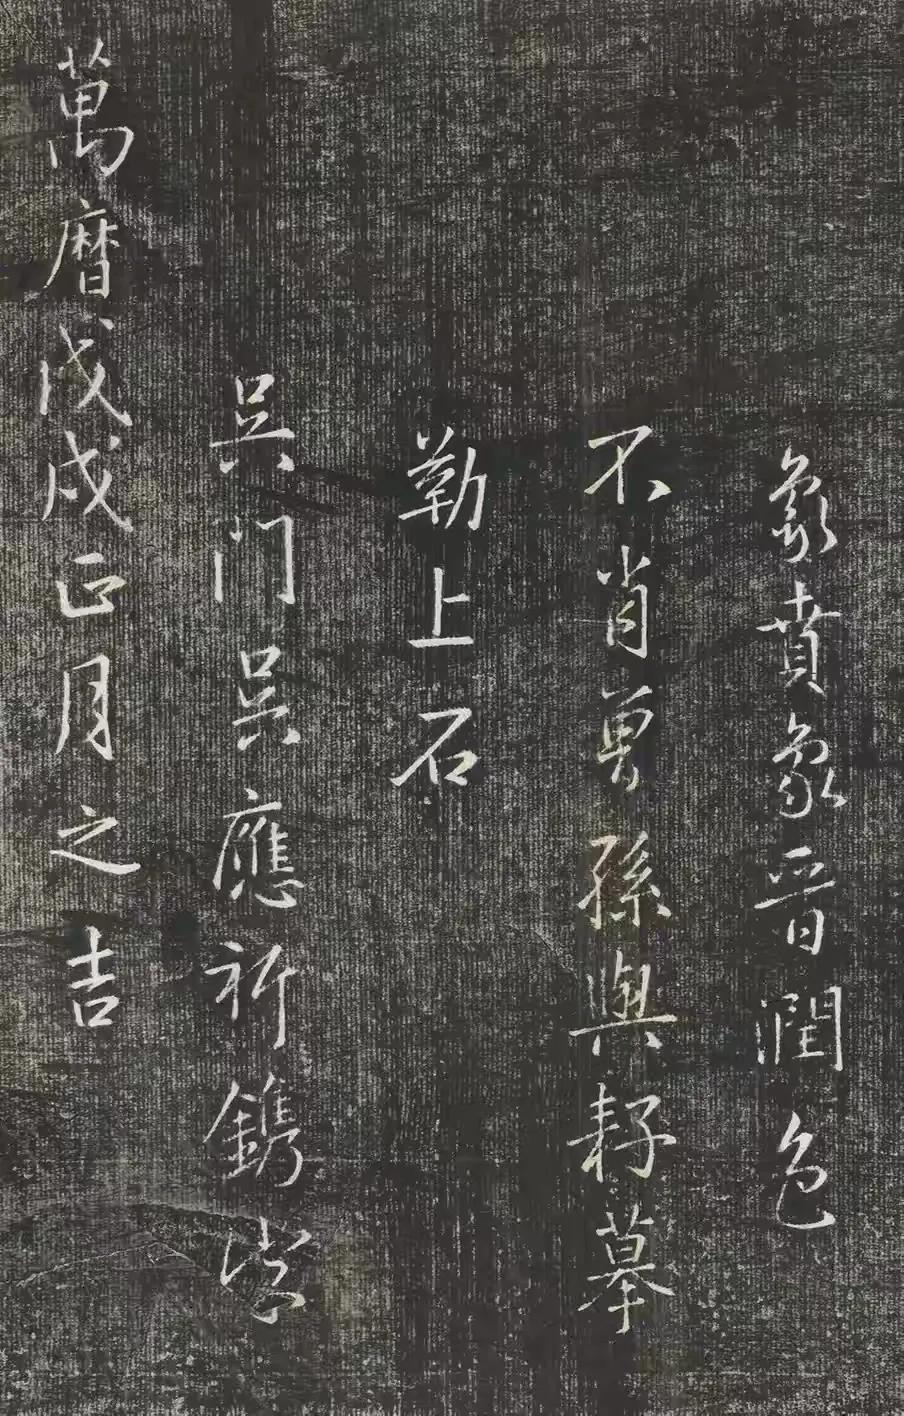 象賁象晉潤色
不肖曾孫與耔摹
勒上石
吳門吳應祈鐫字
萬曆戊戌正月之吉